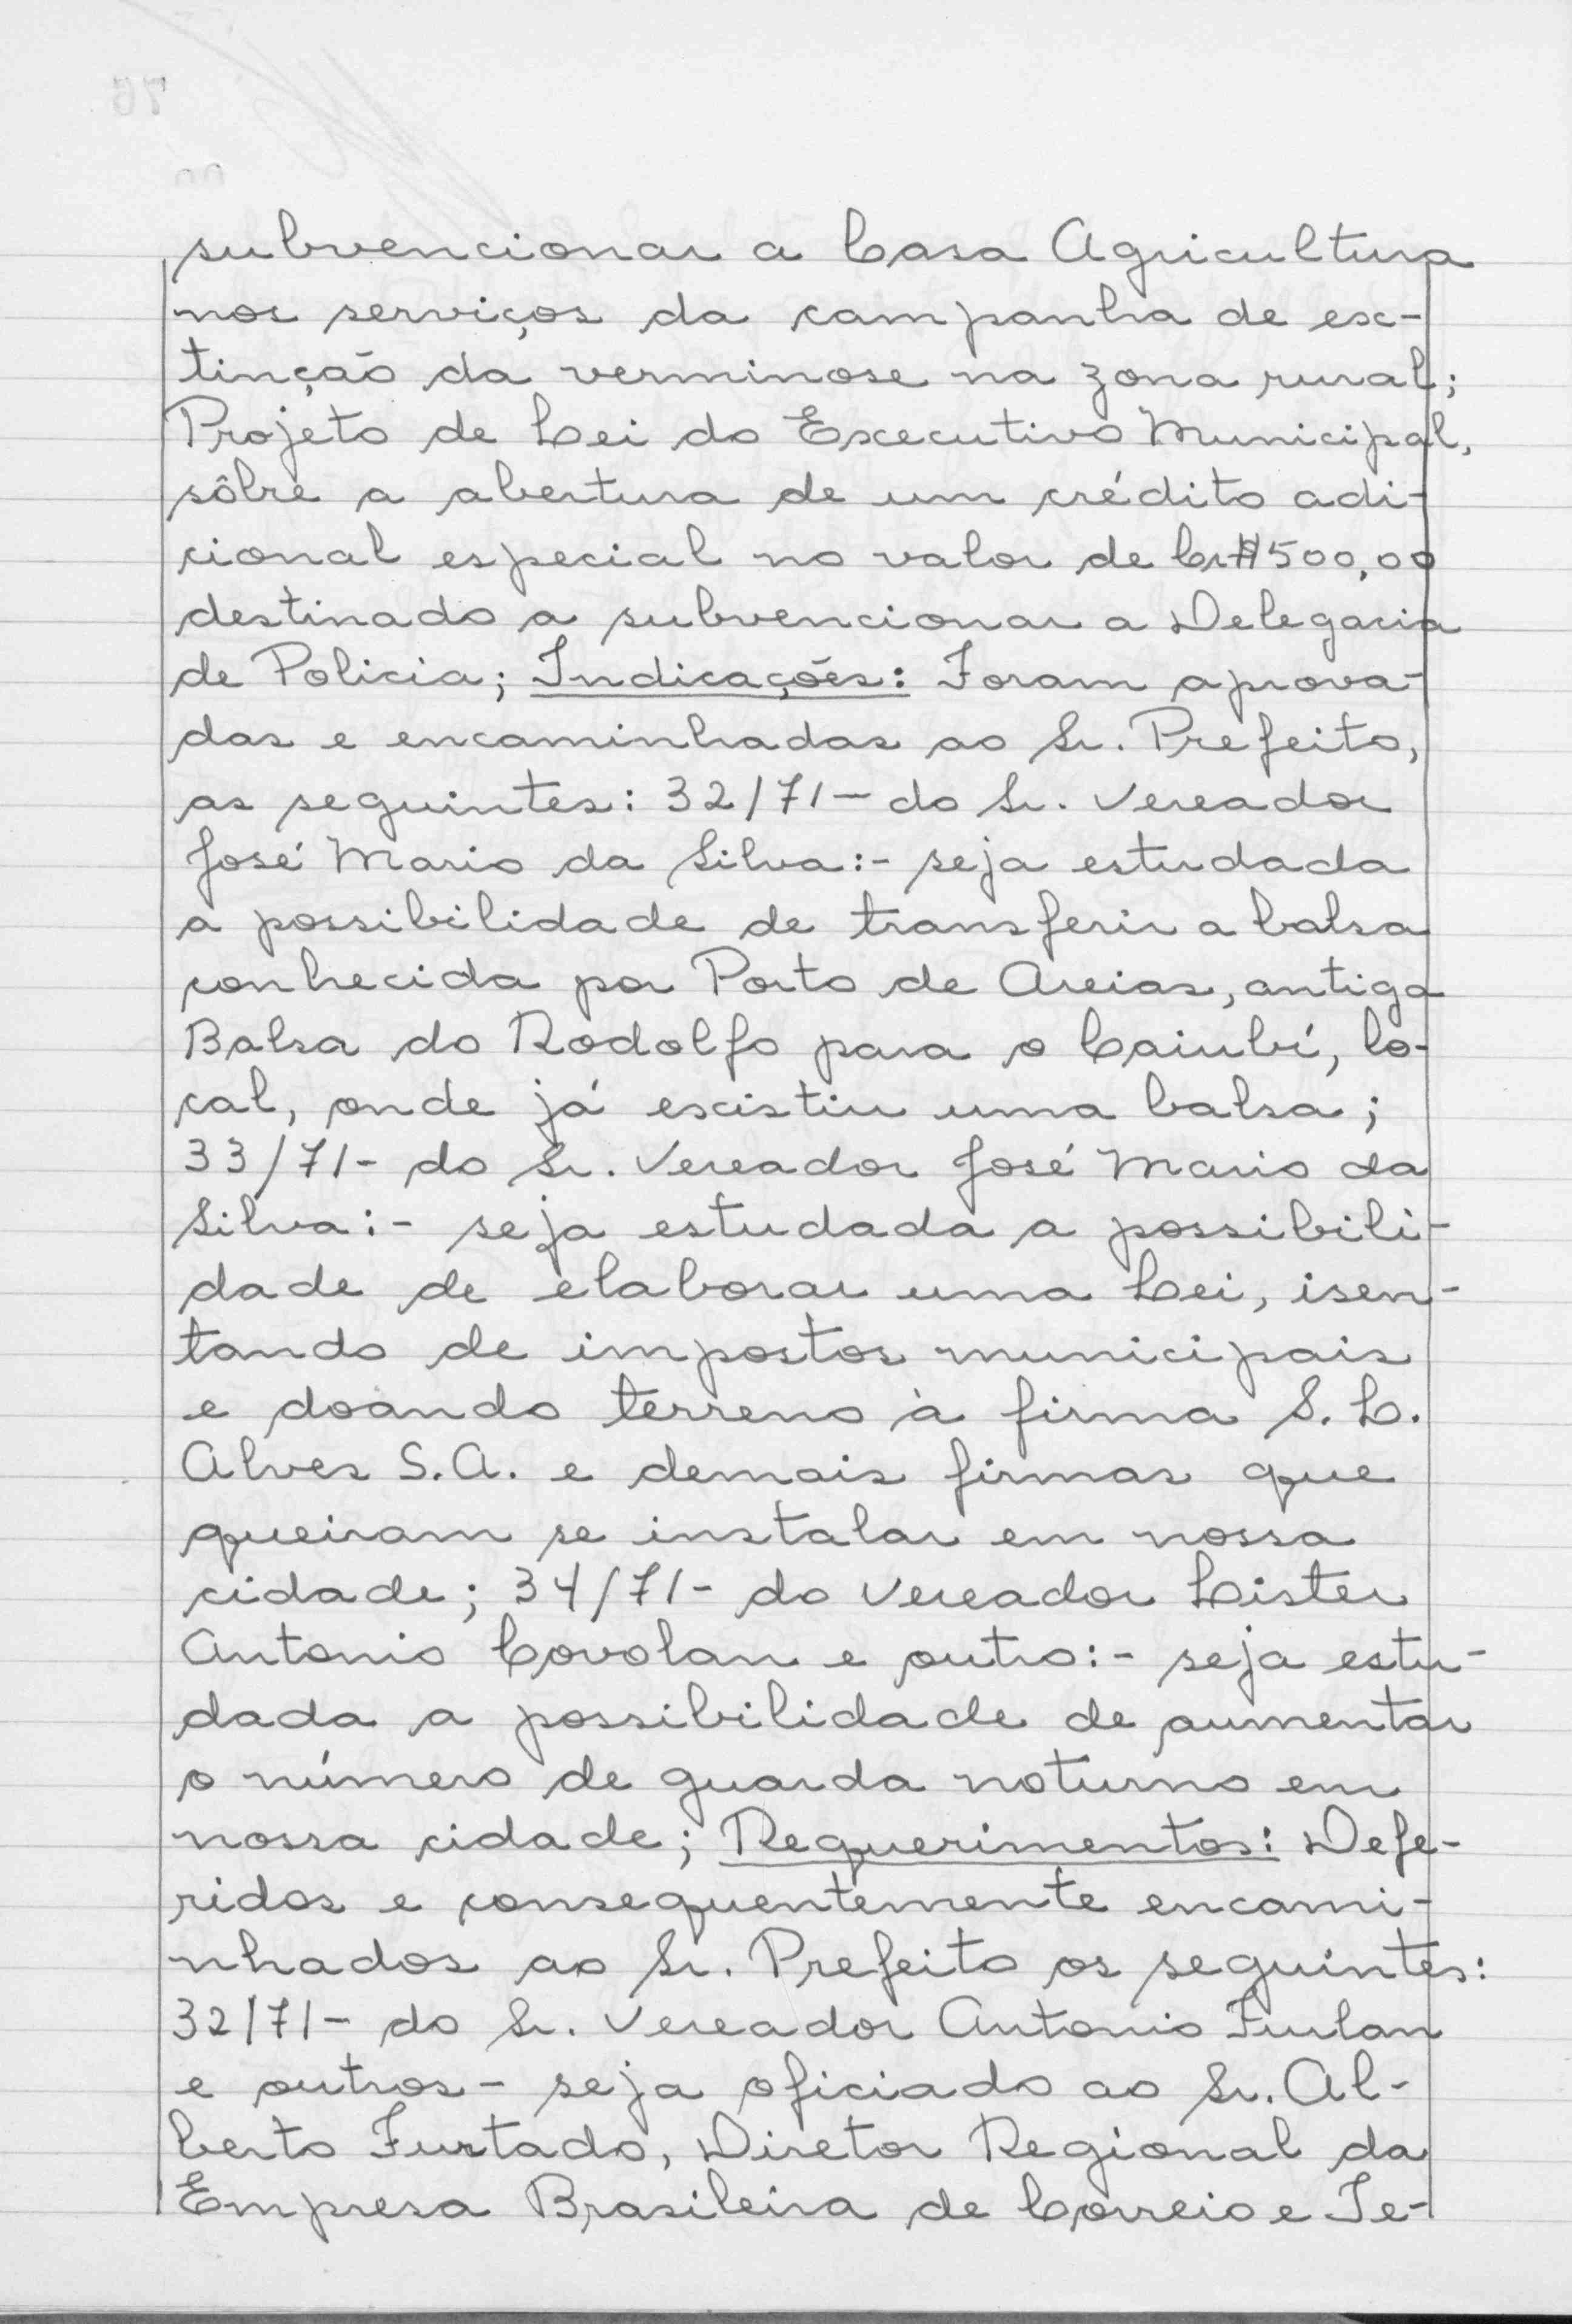 subvencionar a Casa Agricultura
nos serviços da campanha de ex-
tinção da verminose na zona rural;
Projeto de Lei do Executivo Municipal,
sôbre a abertura de um crédito adi-
cional especial no valor de Cr$500,00
destinado a subvencionar a Delegacia
de Policia; Indicações: Foram aprova-
das e encaminhadas ao Sr. Prefeito,
as seguintes: 32/71- do Sr. Vereador
José Mario da Silva:- seja estudada
a possibilidade de transferir a balsa
conhecida por Porto de Areias, antiga
Balsa do Rodolfo para o Caiubí, lo-
cal, onde já existiu uma balsa;
33/71- do Sr. Vereador José Mario da
Silva:- seja estudada a possibili-
dade de elaborar uma Lei, isen-
tando de impostos municipais
e doando terreno à firma S. L.
Alves S.A. e demais firmas que
queiram se instalar em nossa
cidade; 34/71- do Vereador Lister
Antonio Covolan e outro:- seja estu-
dada a possibilidade de aumentar
o número de guarda noturno em
nossa cidade; Requerimentos: Defe-
ridos e consequentemente encami-
nhados ao Sr. Prefeito os seguintes:
32/71- do Sr. Vereador Antonio Furlan
e outros- seja oficiado ao Sr. Al-
berto Furtado, Diretor Regional da
Empresa Brasileira de Correio e Te-